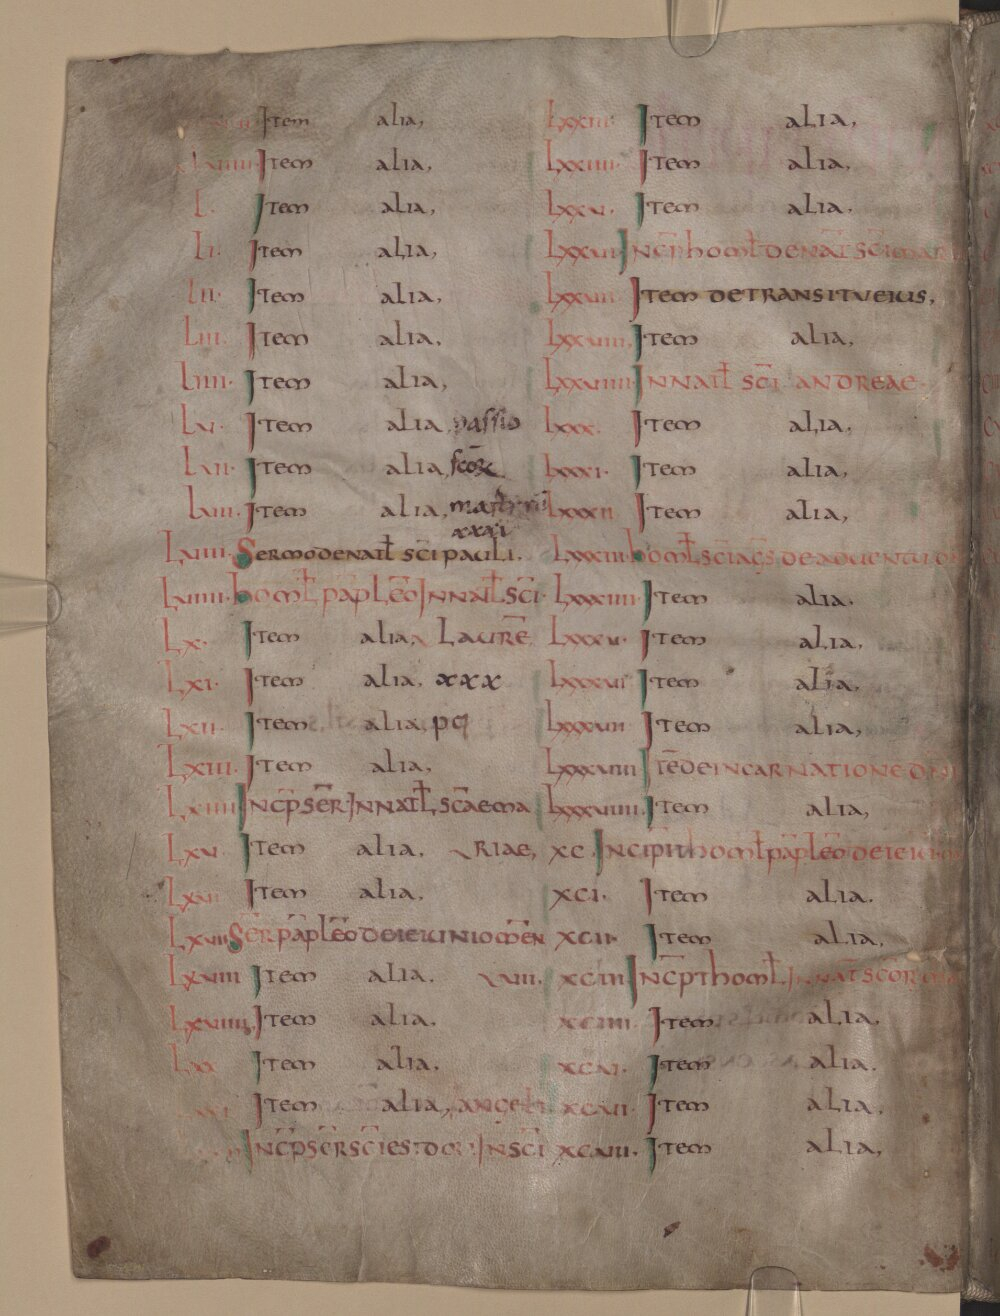 Item alia,
Item alia,
L. Item alia,
LI. Item alia,
LII. Item alia,
LIII. Item alia,
LIIII. Item alia,
LV. Item alia, passio
LVII. Item alia, scōꝝ
LVIII. Item alia,
xxxi
LVIIII. Sermo de nat̄l sc̄i pauli.
LVIIII. homl̄ pāp lēo In nat̄l sc̄i
LX. Item alia, Laurē
LXI. Item alia. xxx
LXII. Item alia, pq
LXIII. Item alia,
LXIIII Inc̄p sēr In nat̄l sc̄ae ma
LXV. Item alia. riae,
LXVI Item alia.
LXVII Sēr pāp lēo de ieiunio mēn
LXVIII Item alia. viii.
LXVIIII, Item alia.
LXX Item alia,
Item alia, angeli
Inc̄p sēr sc̄i est In sc̄i
LXXIII Item alia,
LXXIIII. Item alia,
LXXV. Item alia.
LXXVI Inc̄p homl̄ de nat̄ sc̄i
LXXVII Item de transitu eius,
LXXVIII, Item alia,
LXXVIIII. In nat̄l sc̄i andreae.
LXXX. Item alia,
LXXXI. Item alia,
LXXXII Item alia,
LXXXIII homl̄ sc̄i de aduentu
LXXXIIII Item alia.
LXXXV. Item alia,
LXXXVI Item alia,
LXXXVII Item alia,
LXXXVIII Itē de incarnatione
LXXXVIIII. Item alia,
XC. Incip homl̄ pāp lēo de ieiu
XCI. Item alia.
XCII. Item alia,
XCIII Inc̄pt homl̄ In nat̄ sc̄or
XCIIII. Item alia,
XCVI. Item alia.
XCVII Item alia,
XCVIII. Item alia,